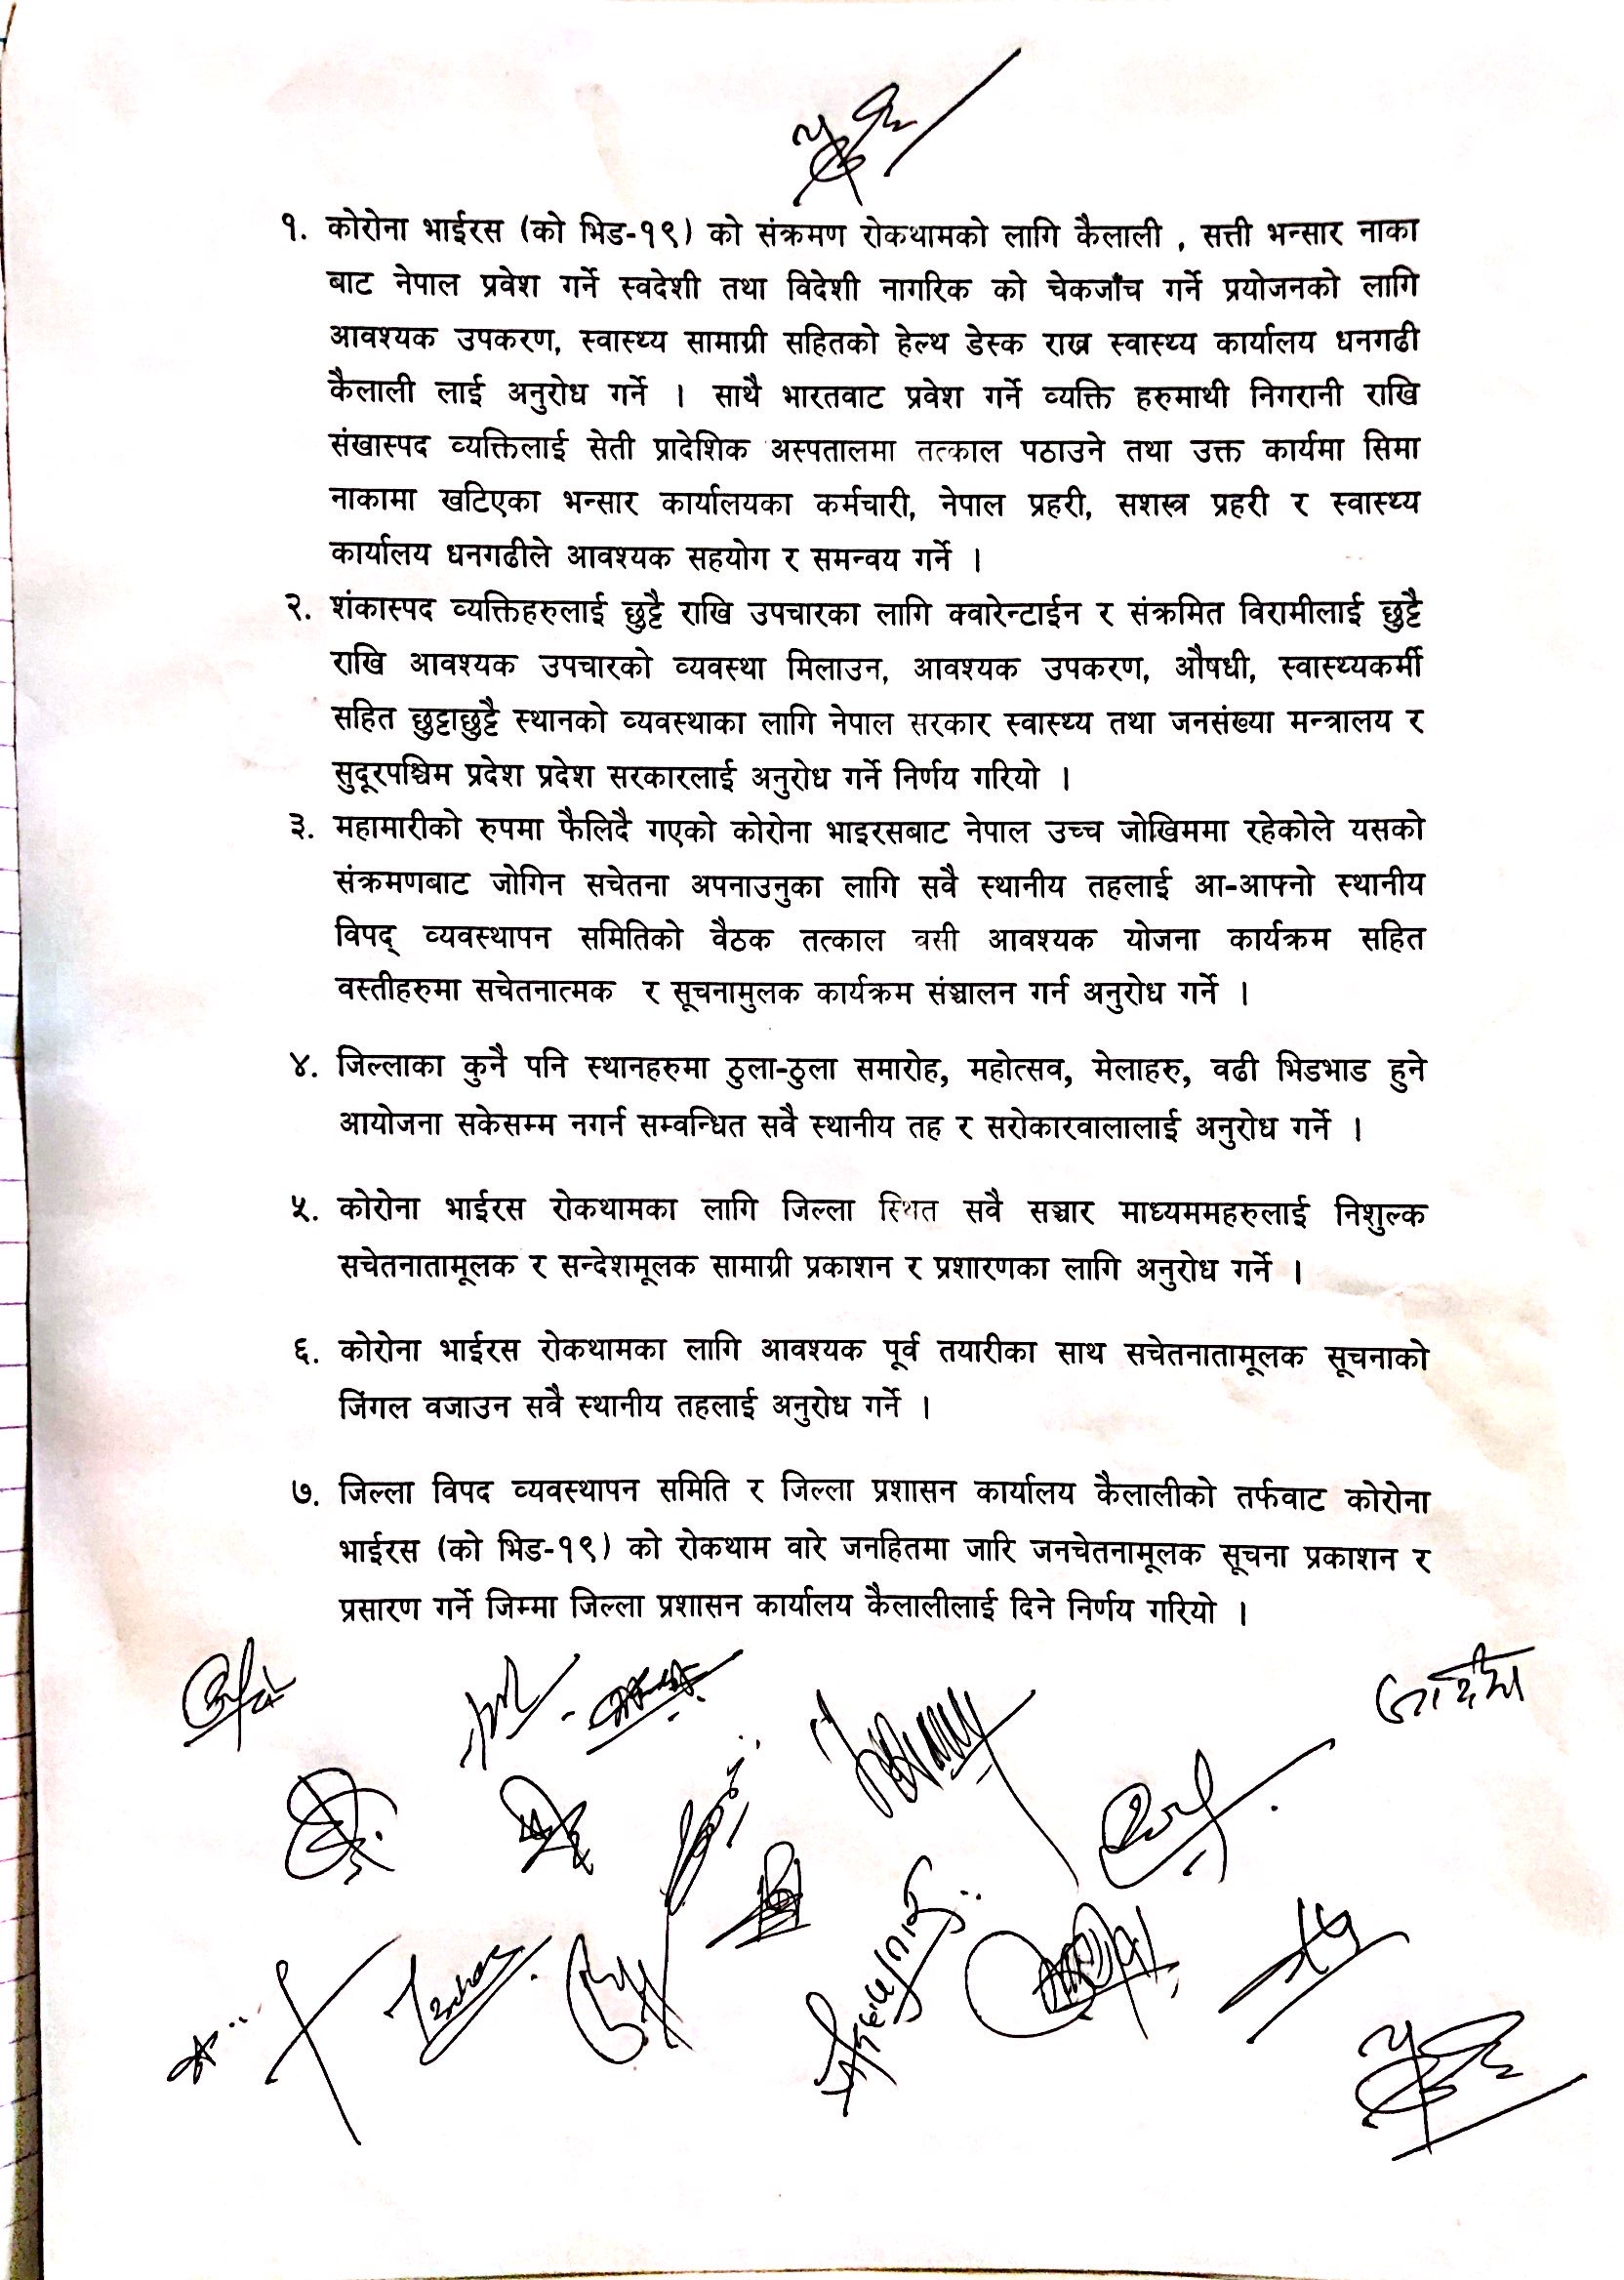 १. कोरोना भाईरस (को भिड-१९) को संक्रमण रोकथामको लागि कैलाली , सत्ती भन्सार नाका
बाट नेपाल प्रवेश गर्ने स्वदेशी तथा विदेशी नागरिक को चेकजाँच गर्ने प्रयोजनको लागि
आवश्यक उपकरण, स्वास्थ्य सामाग्री सहितको हेल्थ डेस्क राख्न स्वास्थ्य कार्यालय धनगढी
कैलाली लाई अनुरोध गर्ने । साथै भारतवाट प्रवेश गर्ने व्यक्ति हरुमाथी निगरानी राखि
संखास्पद व्यक्तिलाई सेती प्रादेशिक अस्पतालमा तत्काल पठाउने तथा उक्त कार्यमा सिमा
नाकामा खटिएका भन्सार कार्यालयका कर्मचारी, नेपाल प्रहरी, सशस्त्र प्रहरी र स्वास्थ्य
कार्यालय धनगढीले आवश्यक सहयोग र समन्वय गर्ने ।
२. शंकास्पद व्यक्तिहरुलाई छुट्टै राखि उपचारका लागि क्वारेन्टाईन र संक्रमित विरामीलाई छुट्टै
राखि आवश्यक उपचारको व्यवस्था मिलाउन, आवश्यक उपकरण, औषधी, स्वास्थ्यकर्मी
सहित छुट्टाछुट्टै स्थानको व्यवस्थाका लागि नेपाल सरकार स्वास्थ्य तथा जनसंख्या मन्त्रालय र
सुदूरपश्चिम प्रदेश प्रदेश सरकारलाई अनुरोध गर्ने निर्णय गरियो ।
३. महामारीको रुपमा फैलिदै गएको कोरोना भाइरसबाट नेपाल उच्च जोखिममा रहेकोले यसको
संक्रमणबाट जोगिन सचेतना अपनाउनुका लागि सवै स्थानीय तहलाई आ-आफ्नो स्थानीय
विपद् व्यवस्थापन समितिको वैठक तत्काल वसी आवश्यक योजना कार्यक्रम सहित
वस्तीहरुमा सचेतनात्मक र सूचनामुलक कार्यक्रम संञ्चालन गर्न अनुरोध गर्ने ।
४. जिल्लाका कुनै पनि स्थानहरुमा ठुला-ठुला समारोह, महोत्सव, मेलाहरु, वढी भिडभाड हुने
आयोजना सकेसम्म नगर्न सम्वन्धित सवै स्थानीय तह र सरोकारवालालाई अनुरोध गर्ने ।
५. कोरोना भाईरस रोकथामका लागि जिल्ला स्थित सवै सञ्चार माध्यममहरुलाई निशुल्क
सचेतनातामूलक र सन्देशमूलक सामाग्री प्रकाशन र प्रशारणका लागि अनुरोध गर्ने ।
६. कोरोना भाईरस रोकथामका लागि आवश्यक पूर्व तयारीका साथ सचेतनातामूलक सूचनाको
जिंगल वजाउन सवै स्थानीय तहलाई अनुरोध गर्ने ।
७. जिल्ला विपद व्यवस्थापन समिति र जिल्ला प्रशासन कार्यालय कैलालीको तर्फवाट कोरोना
भाईरस (को भिड-१९) को रोकथाम वारे जनहितमा जारि जनचेतनामूलक सूचना प्रकाशन र
प्रसारण गर्ने जिम्मा जिल्ला प्रशासन कार्यालय कैलालीलाई दिने निर्णय गरियो ।